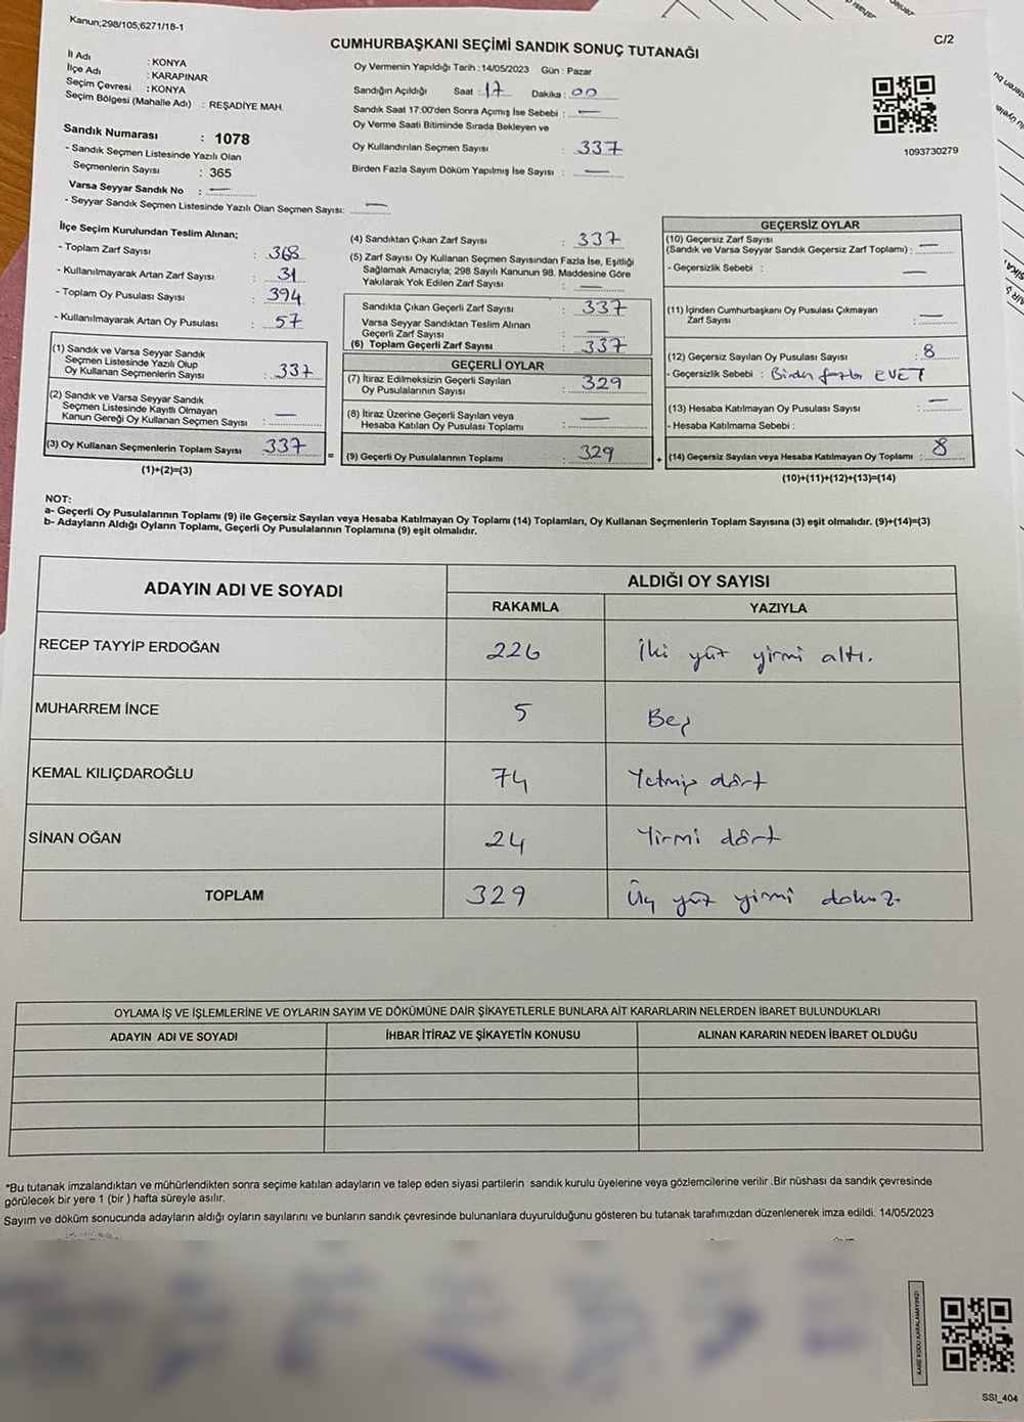 Kanun;298/105;6271/18-1
C/2
CUMHURBAŞKANI SEÇİMİ SANDIK SONUÇ TUTANAĞI
İl Adı : KONYA
İlçe Adı : KARAPINAR
Seçim Çevresi : KONYA
Seçim Bölgesi (Mahalle Adı) : REŞADİYE MAH.
Sandık Numarası : 1078
- Sandık Seçmen Listesinde Yazılı Olan
Seçmenlerin Sayısı : 365
Varsa Seyyar Sandık No : —
- Seyyar Sandık Seçmen Listesinde Yazılı Olan Seçmen Sayısı: —
Oy Vermenin Yapıldığı Tarih : 14/05/2023 Gün : Pazar
Sandığın Açıldığı Saat : 17 Dakika : 00
Sandık Saat 17:00'den Sonra Açımış İse Sebebi : —
Oy Verme Saati Bitiminde Sırada Bekleyen ve
Oy Kullandırılan Seçmen Sayısı : 337
Birden Fazla Sayım Döküm Yapılmış İse Sayısı : —
1093730279
İlçe Seçim Kurulundan Teslim Alınan;
- Toplam Zarf Sayısı : 368
- Kullanılmayarak Artan Zarf Sayısı : 31
- Toplam Oy Pusulası Sayısı : 394
- Kullanılmayarak Artan Oy Pusulası : 57
(1) Sandık ve Varsa Seyyar Sandık
Seçmen Listesinde Yazılı Olup
Oy Kullanan Seçmenlerin Sayısı : 337
(2) Sandık ve Varsa Seyyar Sandık
Seçmen Listesinde Kayıtlı Olmayan
Kanun Gereği Oy Kullanan Seçmen Sayısı : —
(3) Oy Kullanan Seçmenlerin Toplam Sayısı 337
(1)+(2)=(3)
(4) Sandıktan Çıkan Zarf Sayısı : 337
(5) Zarf Sayısı Oy Kullanan Seçmen Sayısından Fazla İse, Eşitliği
Sağlamak Amacıyla; 298 Sayılı Kanunun 98. Maddesine Göre
Yakılarak Yok Edilen Zarf Sayısı : —
Sandıkta Çıkan Geçerli Zarf Sayısı : 337
Varsa Seyyar Sandıktan Teslim Alınan
Geçerli Zarf Sayısı : —
(6) Toplam Geçerli Zarf Sayısı : 337
GEÇERLİ OYLAR
(7) İtiraz Edilmeksizin Geçerli Sayılan
Oy Pusulalarının Sayısı : 329
(8) İtiraz Üzerine Geçerli Sayılan veya
Hesaba Katılan Oy Pusulası Toplamı : —
= (9) Geçerli Oy Pusulalarının Toplamı : 329
GEÇERSİZ OYLAR
(10) Geçersiz Zarf Sayısı
(Sandık ve Varsa Seyyar Sandık Geçersiz Zarf Toplamı) : —
- Geçersizlik Sebebi : —
(11) İçinden Cumhurbaşkanı Oy Pusulası Çıkmayan
Zarf Sayısı : —
(12) Geçersiz Sayılan Oy Pusulası Sayısı : 8
- Geçersizlik Sebebi : Birden fazla EVET
(13) Hesaba Katılmayan Oy Pusulası Sayısı : —
- Hesaba Katılmama Sebebi :
+ (14) Geçersiz Sayılan veya Hesaba Katılmayan Oy Toplamı : 8
(10)+(11)+(12)+(13)=(14)
NOT:
a- Geçerli Oy Pusulalarının Toplamı (9) ile Geçersiz Sayılan veya Hesaba Katılmayan Oy Toplamı (14) Toplamları, Oy Kullanan Seçmenlerin Toplam Sayısına (3) eşit olmalıdır. (9)+(14)=(3)
b- Adayların Aldığı Oyların Toplamı, Geçerli Oy Pusulalarının Toplamına (9) eşit olmalıdır.
ADAYIN ADI VE SOYADI
ALDIĞI OY SAYISI
RAKAMLA YAZIYLA
RECEP TAYYİP ERDOĞAN 226 İki yüz yirmi altı.
MUHARREM İNCE 5 Beş
KEMAL KILIÇDAROĞLU 74 Yetmiş dört
SİNAN OĞAN 24 Yirmi dört
TOPLAM 329 Üç yüz yirmi dokuz.
OYLAMA İŞ VE İŞLEMLERİNE VE OYLARIN SAYIM VE DÖKÜMÜNE DAİR ŞİKAYETLERLE BUNLARA AİT KARARLARIN NELERDEN İBARET BULUNDUKLARI
ADAYIN ADI VE SOYADI İHBAR İTİRAZ VE ŞİKAYETİN KONUSU ALINAN KARARIN NEDEN İBARET OLDUĞU
*Bu tutanak imzalandıktan ve mühürlendikten sonra seçime katılan adayların ve talep eden siyasi partilerin sandık kurulu üyelerine veya gözlemcilerine verilir .Bir nüshası da sandık çevresinde
görülecek bir yere 1 (bir ) hafta süreyle asılır.
Sayım ve döküm sonucunda adayların aldığı oyların sayılarını ve bunların sandık çevresinde bulunanlara duyurulduğunu gösteren bu tutanak tarafımızdan düzenlenerek imza edildi. 14/05/2023
KARE KODU KARALAMAYINIZ!
SSI_404